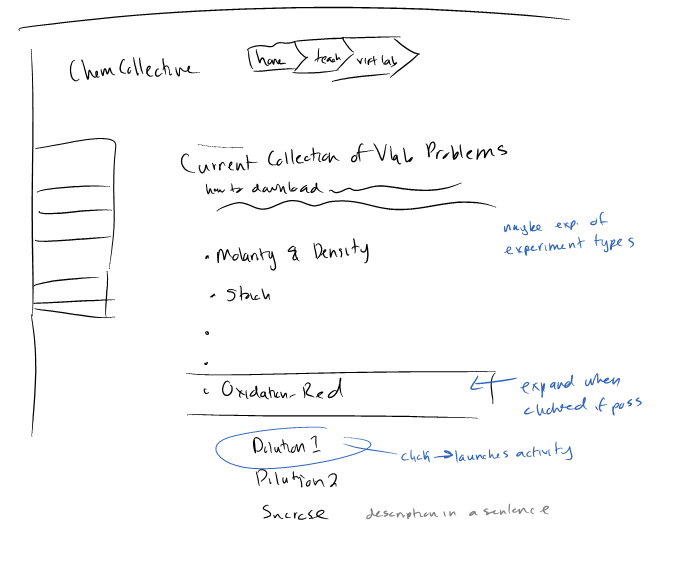 ChemCollective
home teach virt lab
Current Collection of Vlab Problems
how to download
maybe exp. of
experiment types
• Molarity & Density
• Stoich
•
•
• Oxidation-Red
expand when
clicked if poss
Dilution 1
click → launches activity
Dilution 2
Sucrose description in a sentence